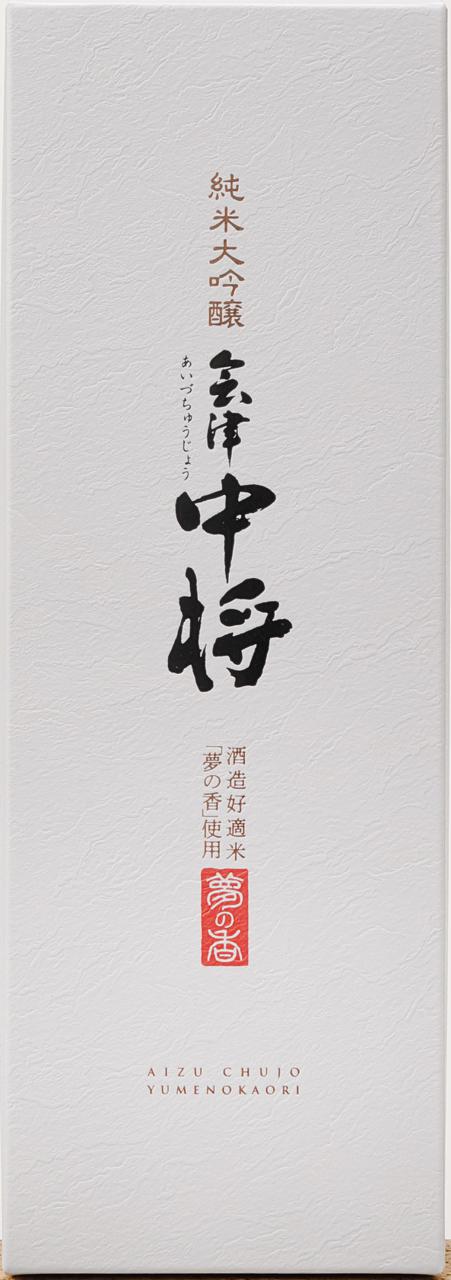 純米大吟醸
会津
中将
あいづちゅうじょう
酒造好適米
「夢の香」使用
夢の香
AIZU CHUJO
YUMENOKAORI